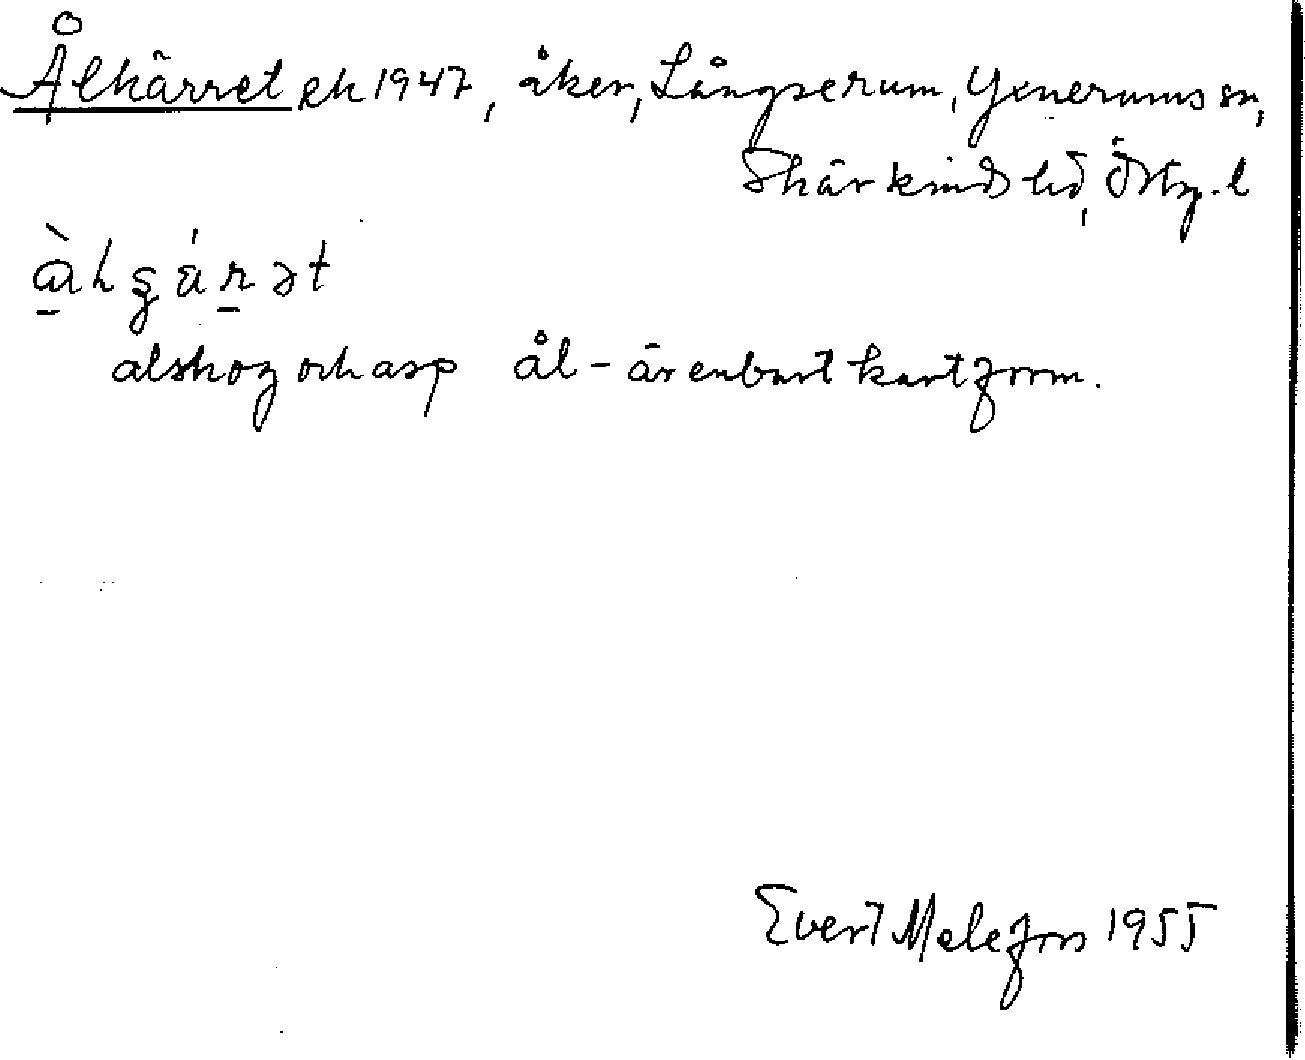 Ålkärret ek 1947, åker, Långserum, Yxnerums sn,
Skärkinds hd, Östg. l
alskog och asp ål- är enbart kartform.
Evert Melefors 1955